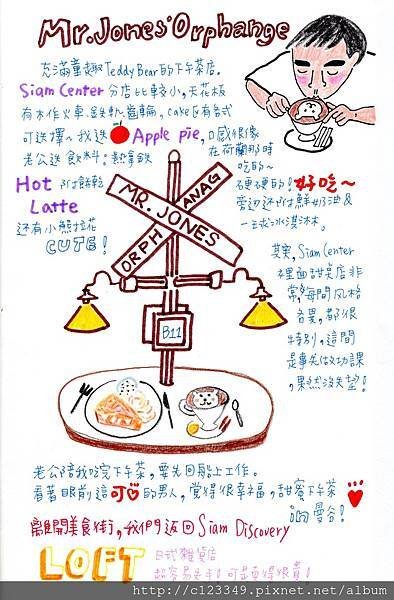 Mr.Jones' Orphange
充滿童趣Teddy Bear的下午茶店。
Siam Center 分店比較小,天花板
有木作火車、鐵軌、齒輪,Cake也有各式
可選擇~我選 Apple pie,口感很像
在荷蘭那時
吃的~
老公選飲料:熱拿鐵
Hot 附餅乾
Latte
還有小熊拉花
CUTE!
硬硬的!好吃~
旁邊還附鮮奶油&
一球冰淇淋。
MR. JONES
ORPH ANAG
B11
其實,Siam Center
裡面甜點店非
常多,每間風格
各異,都很
特別,這間
是事先做功課
,果然沒失望!
老公陪我吃完下午茶,要先回船上工作。
看著眼前這可愛的男人,覺得很幸福,甜蜜下午茶
in 曼谷!
離開美食街,我們返回Siam Discovery
LOFT 日式雜貨店
超容易失手!可是賣得很貴!
http://c123349.pixnet.net/album